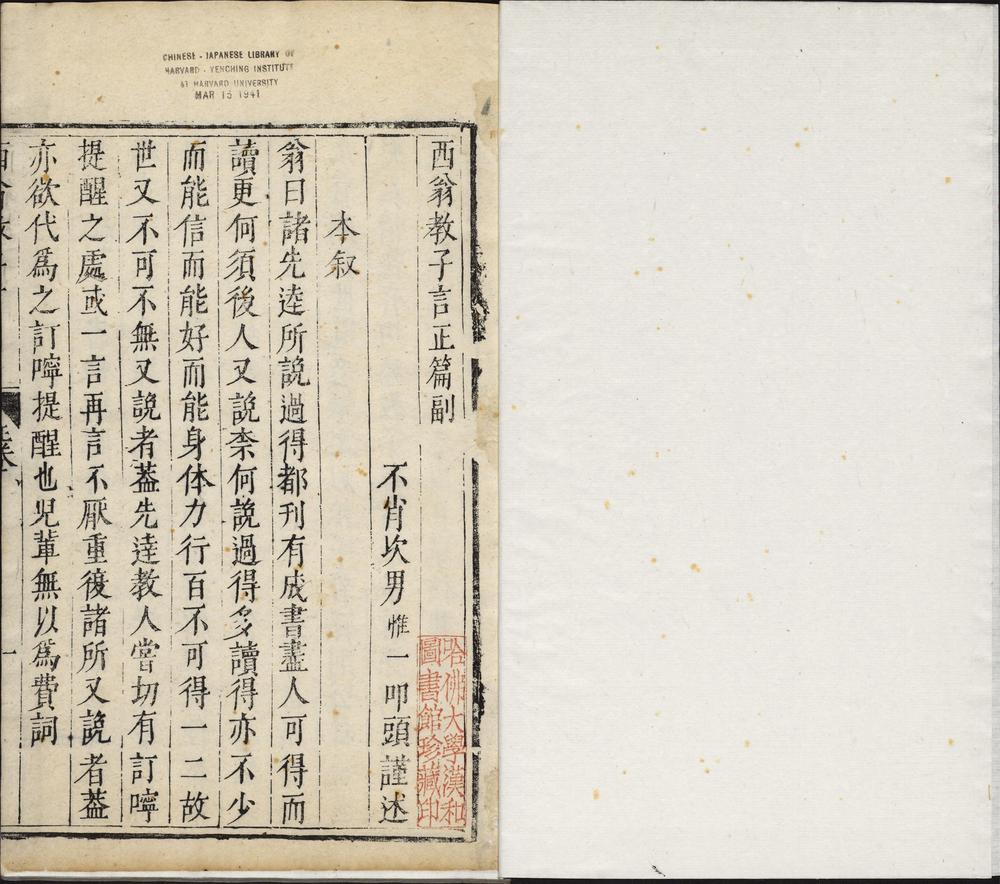 CHINESE - JAPANESE LIBRARY OF
HARVARD - YENCHING INSTITUTE
AT HARVARD UNIVERSITY
MAR 15 1941
西翁教子言正篇副
不肖坎男惟一叩頭謹述
本叙
翁曰諸先逹所說過得都刊有成書盡人可得而
讀更何須後人又說柰何說過得多讀得亦不少
而能信而能好而能身体力行百不可得一二故
世又不可不無又說者葢先逹教人嘗切有訂嚀
提醒之處或一言再言不厭重復諸所又說者葢
亦欲代爲之訂嚀提醒也兒軰無以爲費詞
哈佛大學漢和
圖書館珍藏印
一